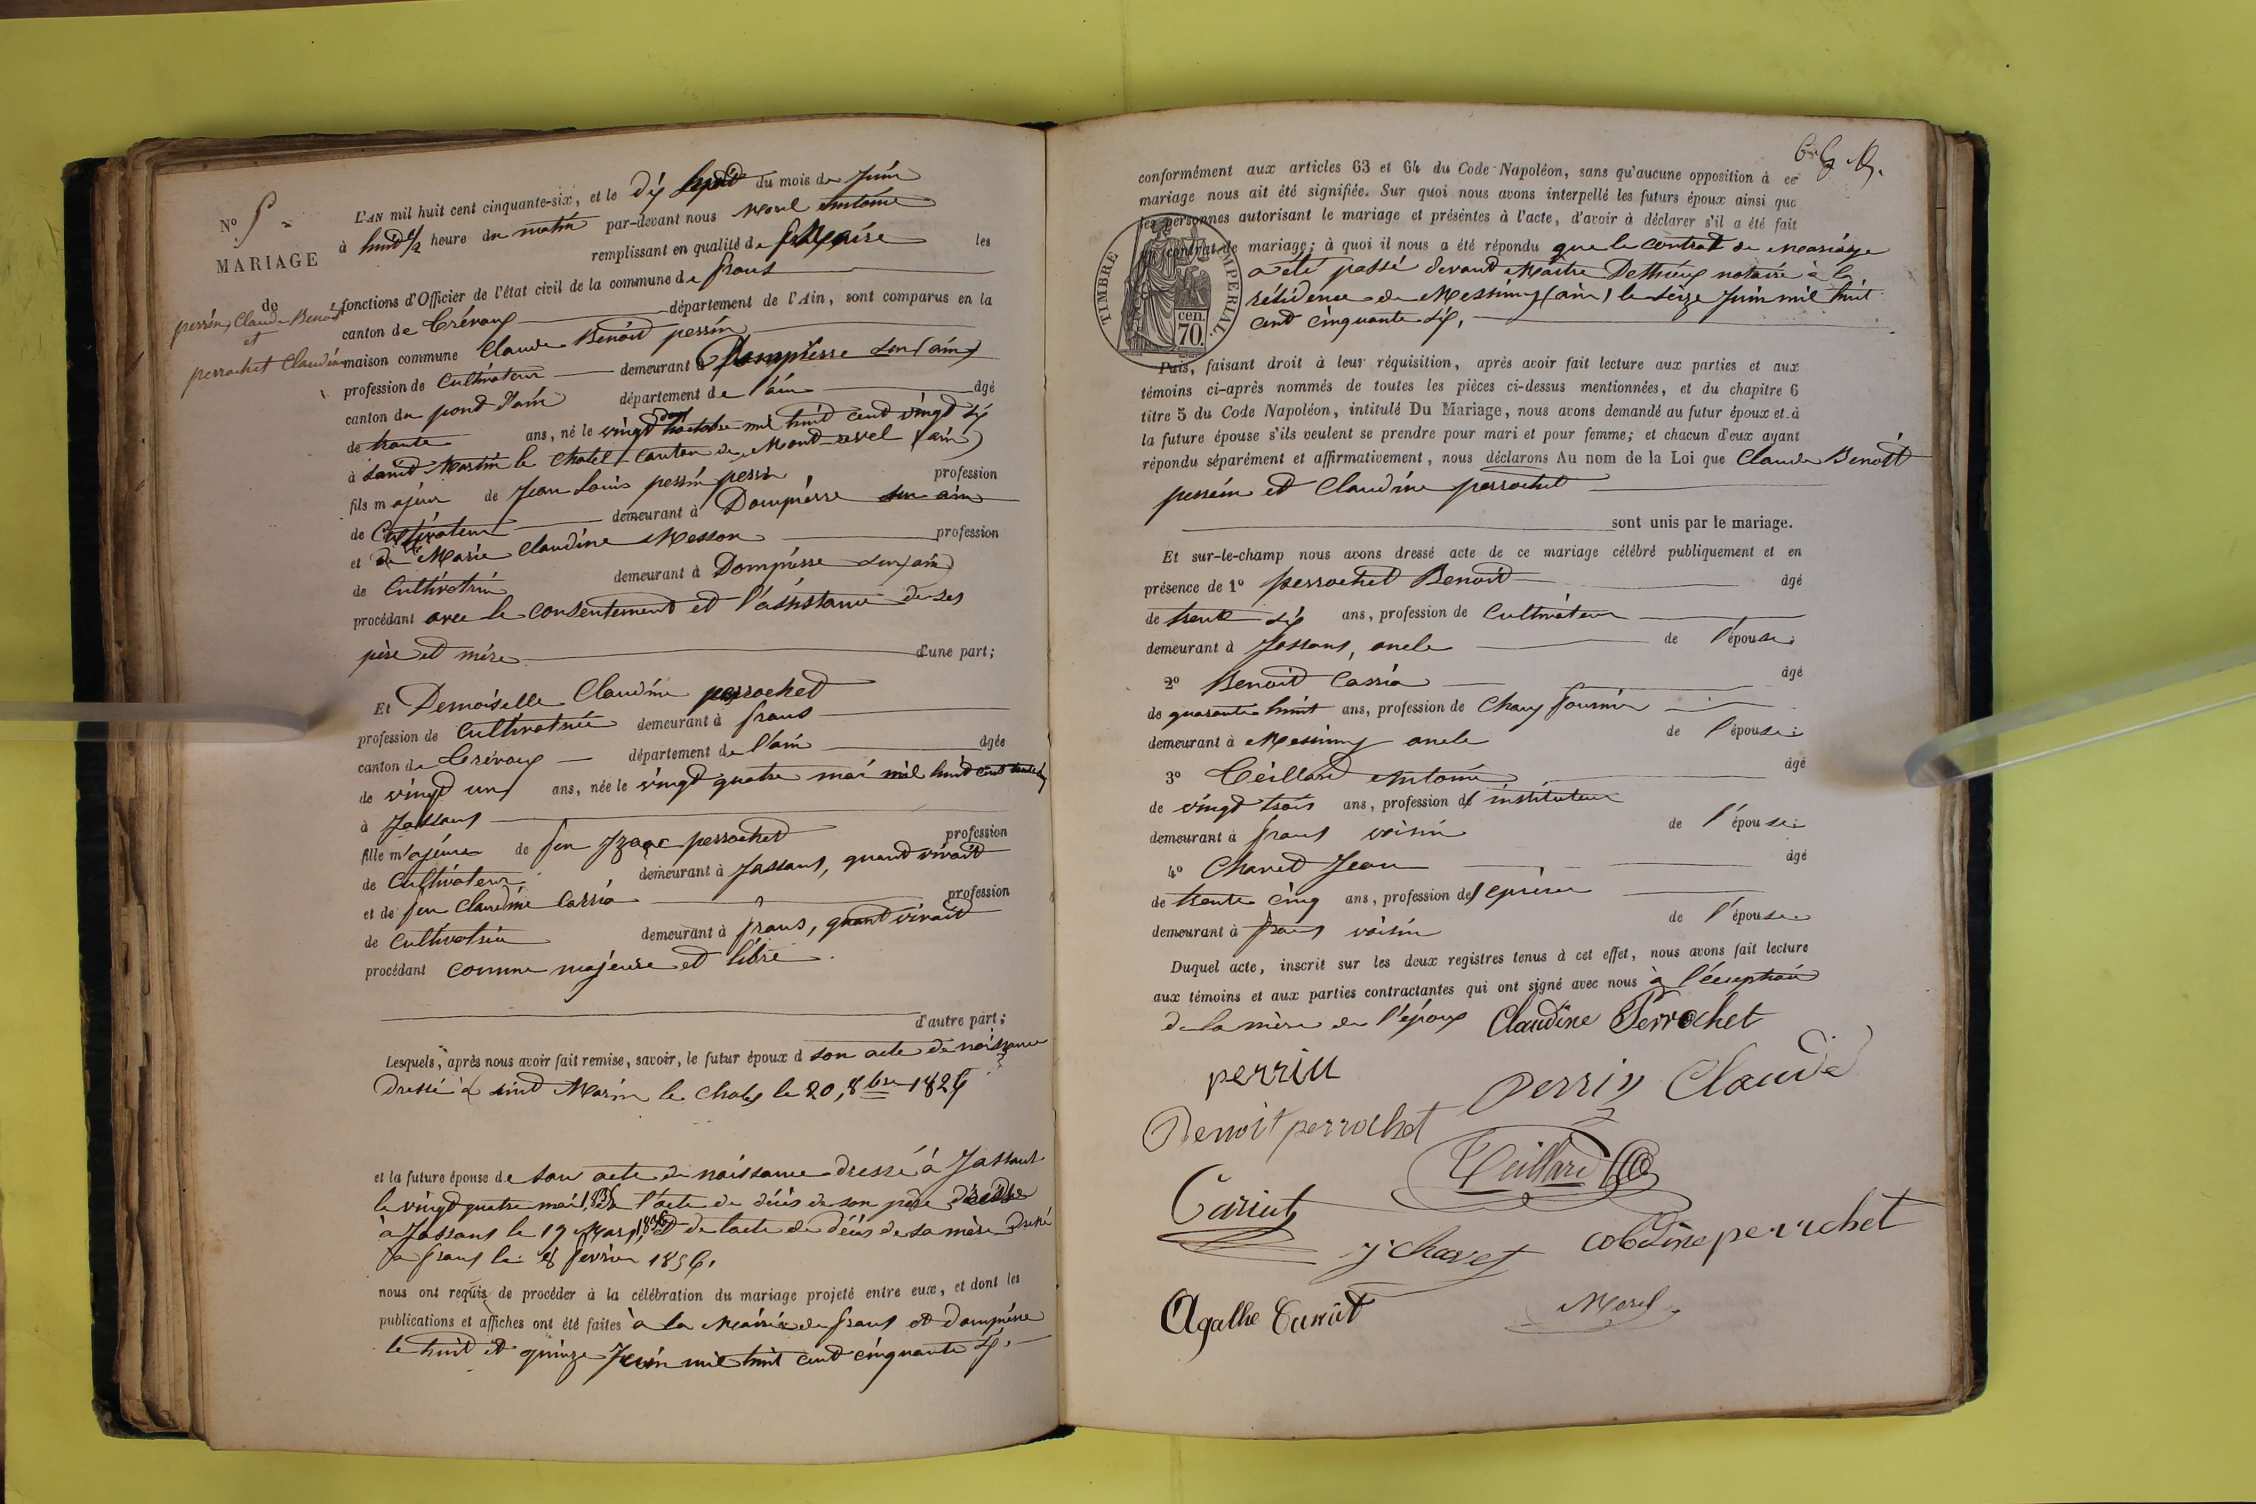 N° 5
MARIAGE
de
perrin, Claude Benoit
et
perrochet Claudine
L'AN mil huit cent cinquante-six, et le dix sept du mois de Juin
à huit 1/2 heure du matin par-devant nous Morel Antoine
remplissant en qualité de Maire les
fonctions d'Officier de l'état civil de la commune de frans
canton de Trévoux département de l'Ain, sont comparus en la
maison commune Claude Benoit perrin
profession de Cultivateur demeurant à Dompierre
canton du pond d'ain département de l'ain âgé
de trente ans, né le vingt octobre mil huit cent vingt six
à Saint Martin le Chatel canton de Mont revel (ain)
fils majeur de Jean Louis perrin profession
de Cultivateur demeurant à Dompierre sur ain
et de Marie Claudine Messon profession
de Cultivatrice demeurant à Dompierre sur (ain)
procédant avec le consentement et l'assistance de ses
père et mère d'une part;
Et Demoiselle Claudine perrochet
profession de Cultivatrice demeurant à frans
canton de Trévoux département de l'ain âgée
de vingt un ans, née le vingt quatre mai mil huit cent
à Jassans
fille majeure de feu Izaac perrochet profession
de Cultivateur demeurant à Jassans, quand vivait
et de feu Claudine Carria profession
de cultivatrice demeurant à frans, quand vivait
procédant comme majeure et libre.
d'autre part;
Lesquels, après nous avoir fait remise, savoir, le futur époux d son acte de naissance
dressé à le 20, 8bre 1826
et la future épouse de son acte de naissance dressé à Jassans
le vingt quatre mai de l'acte de décès de son père dressé
à Jassans le 19 Mars et de l'acte de décès de sa mère dressé
à frans le 8 fevrier 1856.
nous ont requis de procéder à la célébration du mariage projeté entre eux, et dont les
publications et affiches ont été faites à la Mairie de frans et dompierre
le huit et quinze Juin mil huit cent cinquante six.
conformément aux articles 63 et 64 du Code Napoléon, sans qu'aucune opposition à ce
mariage nous ait été signifiée. Sur quoi nous avons interpellé les futurs époux ainsi que
les personnes autorisant le mariage et présentes à l'acte, d'avoir à déclarer s'il a été fait
un contrat de mariage; à quoi il nous a été répondu que le contrat de Mariage
a été passé devant Maitre notaire à la
résidence de Messimy (ain) le seize Juin mil huit
cent cinquante six.
TIMBRE IMPERIAL
70 cen.
Puis, faisant droit à leur réquisition, après avoir fait lecture aux parties et aux
témoins ci-après nommés de toutes les pièces ci-dessus mentionnées, et du chapitre 6
titre 5 du Code Napoléon, intitulé Du Mariage, nous avons demandé au futur époux et à
la future épouse s'ils veulent se prendre pour mari et pour femme; et chacun d'eux ayant
répondu séparément et affirmativement, nous déclarons Au nom de la Loi que Claude Benoit
perrin et Claudine perrochet
sont unis par le mariage.
Et sur-le-champ nous avons dressé acte de ce mariage célébré publiquement et en
présence de 1° perrochet Benoit âgé
de trente six ans, profession de Cultivateur
demeurant à Jassans, oncle de l'épouse
2° Benoit Carria âgé
de quarante huit ans, profession de Chaux fournier
demeurant à Messimy oncle de l'épouse
3° Teillard Antoine âgé
de vingt trois ans, profession d'instituteur
demeurant à frans voisin de l'épouse
4° Chavet Jean âgé
de trente cinq ans, profession de
demeurant à frans voisin de l'épouse
Duquel acte, inscrit sur les deux registres tenus à cet effet, nous avons fait lecture
aux témoins et aux parties contractantes qui ont signé avec nous à l'exception
de la mère de l'époux Claudine Perrochet
perrin
perrin Claude
Benoit perrochet
Teillard
Cariat
J Chavet
perrochet
Agathe
Morel